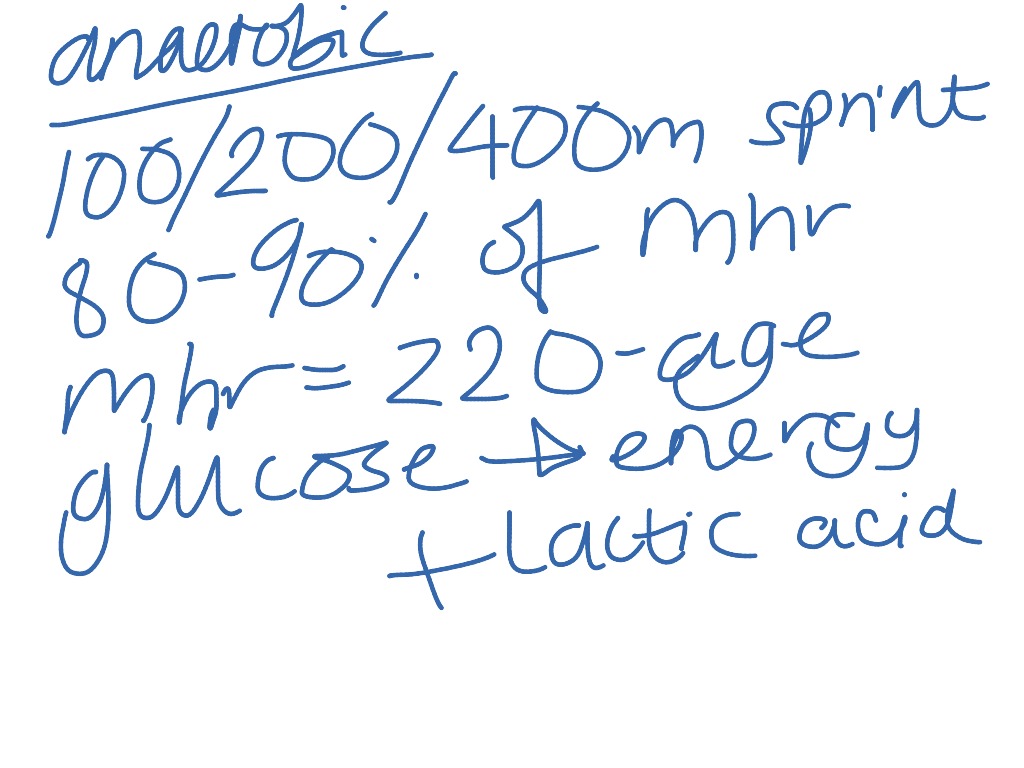 anaerobic
100/200/400m sprint
80-90% of mhr
mhr = 220-age
glucose → energy
+ lactic acid